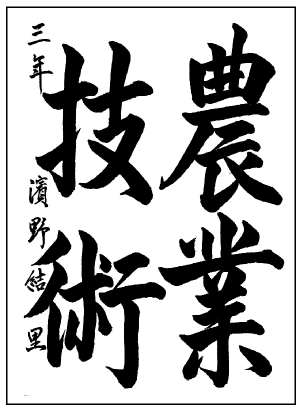 農業
技術
三年 濱野結里